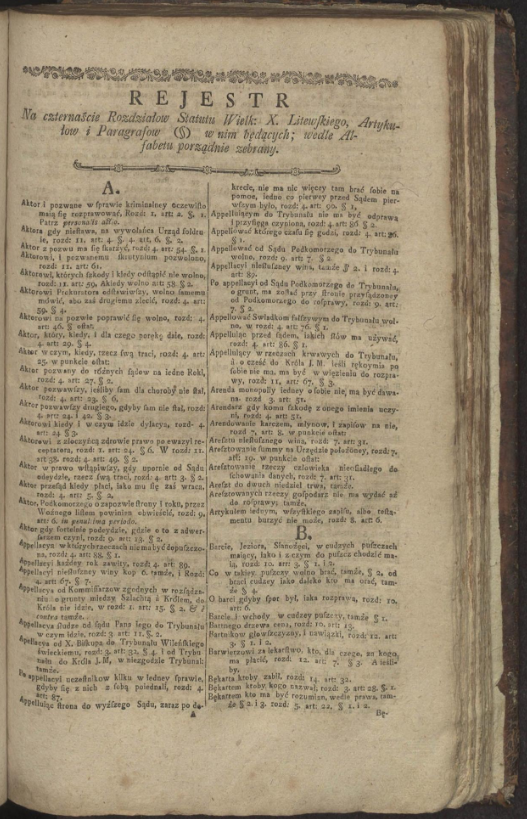 REJESTR
Na czternaście Rozdziałow Statutu Wielk: X. Litewskiego, Artyku-
łow i Paragrafow (§) w nim będących; wedle Al-
fabetu porządnie zebrany.
A.
Aktor i pozwane w sprawie kryminalney oczewisto
mają się rozprawować, Rozd: 1. art: 2. §. 1.
Patrz personali alia.
Aktora gdy niestawa, na wywołańca Urząd
rozd: 11. art: 4. §. 4. art. 6. §. 2.
Aktor z pozwu ma się skarżyć, rozd: 4. art: 54. §. 1.
Aktorowi, i pozwanemu pozwolono,
rozd: 11. art: 61.
Aktorowi, których szkody i kiedy odstąpić nie wolno,
rozd: 11. art: 59. Akiedy wolno art: 58. §. 2.
Aktorowi Prokuratora odstawiwszy, wolno samemu
mówić, abo zaś drugiemu zlecić, rozd: 4. art:
59. § 4.
Aktorowi na pozwie poprawić się wolno, rozd: 4.
art: 46. § ostat:
Aktor, który, kiedy, i dla czego porękę daie, rozd:
4. art: 29. § 4.
Aktor w czym, kiedy, rzecz swą traci, rozd: 4. art:
25. w punkcie ostat:
Aktor pozwany do różnych sądow na iedne Roki,
rozd: 4. art: 27. § 2.
Aktor pozwawszy, ieśliby sam dla choroby nie stał,
rozd: 4. art: 23. § 6.
Aktor pozwawszy drugiego, gdyby sam nie stał, rozd:
4. art: 24 i 42. § 3.
Aktorowi kiedy i w czym idzie dylacya, rozd: 4.
art: 24 § 3.
Aktorowi o zdrowie prawo po ewazyi re-
ceptatora, rozd: 1. art: 24. § 6. W rozd: 11.
art 38. rozd: 4. art: 49. § 2.
Aktor w prawo wstąpiwszy, gdy upornie od Sądu
odeydzie, rzecz swą traci, rozd: 4. art: 3. § 2.
Aktor przesąd kiedy płaci, iako mu się zaś wraca,
rozd: 4. art: 5. § 2.
Aktor, Podkomorzego o zapozwie strony i roku, przez
Woźnego listem powinien obwieścić, rozd: 9.
art: 6. in penultima periodo.
Aktor gdy podeydzie, gdzie o to z adwer-
sarzem czyni, rozd: 9. art: 13. § 2.
Appellacya w których rzeczach niema być dopuszczo-
na, rozd: 4. art: 88. § 1.
Appellacyi każdey rok zawity, rozd: 4. art: 89.
Appellacyi niesłuszney winy kop 6. tamże, i Rozd:
4. art: 67. § 7.
Appellacya od Komissarzow zgodnych w rozsądze-
niu o grunty między Szlachtą a Królem, do
Króla nie idzie, w rozd: 1. art: 15. § 2. & è
contra tamże.
Appellacya sludze od sądu Pana iego do Trybunału
w czym idzie, rozd: 3. art: 11. §. 2.
Appellacya od X. Biskupa do Trybunału Wileńskiego
świeckiemu, rozd: 3. art: 32. § 4. i od Trybu-
nału do Króla J.M, w niezgodzie Trybunał:
tamże.
Po appellacyi uczestnikow kilku w iedney sprawie,
gdyby się z nich z sobą poiednali, rozd: 4.
art: 87.
Appelluiąc strona do wyższego Sądu, zaraz po de-
A
krecie, nie ma nic więcey tam brać sobie na
pomoc, iedno co pierwey przed Sądem pier-
wszym było, rozd: 4. art: 90. § 1.
Appelluiącym do Trybunału nie ma być odprawa
i przysięga czyniona, rozd: 4. art: 86 § 2.
Appellować którego czasu się godzi, rozd: 4. art: 86.
§ 1.
Appellować od Sądu Podkomorzego do Trybunału
wolno, rozd: 9. art: 7. § 2.
Appellacyi niesłuszney wina, tamże § 2. i rozd: 4.
art: 89.
Po appellacyi od Sądu Podkomorzego do Trybunału,
o grunt, ma zostać przy stronie przysądzoney
od Podkomorzego do rosprawy, rozd: 9. art:
7. § 2.
Appellować Świadkom fałszywym do Trybunału wol-
no, w rozd: 4. art: 76. § 1.
Appelluiąc przed sądem, iakich słów ma używać,
rozd: 4. art: 86. § 1.
Appelluiący w rzeczach krwawych do Trybunału,
á o cześć do Króla J.M. ieśli rękoymia po
sobie nie ma, ma być w więzieniu do rozpra-
wy, rozd: 11. art: 67. § 3.
Arenda monopoliy iedney osobie nie, ma być dawa-
na: rozd 3. art: 51.
Arendarz gdy komu szkodę z onego imienia uczy-
ni, rozd: 4. art: 51.
Arendowanie karczem, młynow, i zapisow na nie,
rozd 7. art: 8. w punkcie ostat:
Aresztu niesłusznego wina, rozd: 7. art: 31.
Aresztowanie summy na Urzędzie położoney, rozd: 7.
art: 19. w punkcie ostat:
Aresztowanie rzeczy człowieka nieosiadłego do
schowania danych, rozd: 7. art: 31.
Areszt do dwuch niedziel trwa, tamże.
Aresztowanych rzeczy gospodarz nie ma wydać aż
do rozprawy; tamże.
Artykułem iednym, wszystkiego zapisu, albo testa-
mentu burzyć nie może, rozd: 8. art: 6.
B.
Barcie, Jeziora, Sianożęci, w cudzych puszczach
maiący, iako i z czym do puszcz chodzić ma-
ią, rozd: 10. art: 3. § 1. i 2.
Co w takiey puszczy wolno brać, tamże, § 2, od
braci cudzey iako daleko kto ma orać, tam-
że § 4.
O barci gdyby spór był, iaka rozprawa, rozd: 10.
art: 6.
Barcie, i wchody w cudzey puszczy, tamże § 1.
Bartnego drzewa cena, rozd: 10. art: 13.
Bartnikow główszczyzny, i nawiązki, rozd: 12. art:
3. § 1. i 2.
Barwierzowi za lekarstwo, kto, dla czego, za kogo,
ma płacić, rozd: 12. art: 7. § 3. A ieśli-
by,
Bękarta ktoby, zabił, rozd: 14. art: 32.
Bękartem ktoby kogo nazwał, rozd: 3. art: 28. §. 2.
Bękartem kto ma być rozumian, wedle prawa, tam-
że § 2. i 3. rozd: 5. art: 22. § 1. i 2.
Bę-